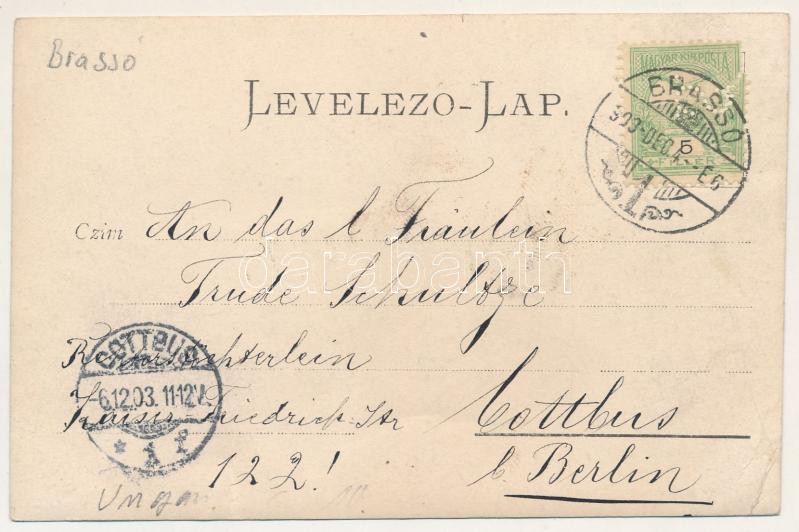 Brassó
MAGYAR KIR. POSTA
LEVELEZO-LAP.
BRASSÓ
903-DEC 4--E6
5
FILLÉR
Czim An das l Fräulein
Trude Schultze
darabanth
Rektorstöchterlein
COTTBUS
-6.12.03. 11-12V.
* 1 f
Kaiser-Friedrich-Str
Cottbus
122!
b. Berlin
Ungarn